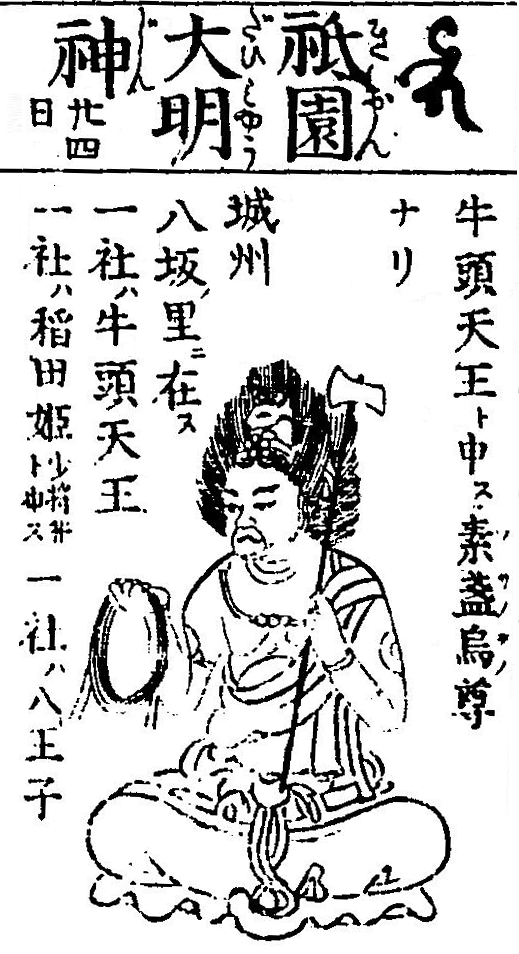 祇園
大明
神
廿四
日
ぎをん
だいみやう
じん
牛頭天王ト申ス素盞烏尊
ナリ
城州
八坂里ニ在ス
一社ハ牛頭天王
一社ハ稲田姫少将井ト申ス一社ハ八王子